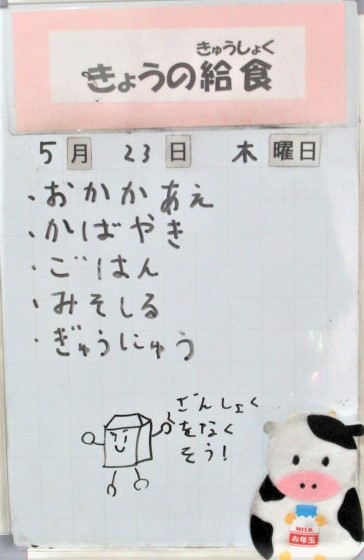 きゅうしょく
きょうの給食
5月 23日 木曜日
・おかかあえ
・かばやき
・ごはん
・みそしる
・ぎゅうにゅう
ざんしょく
をなく
そう!
MILK
お年玉